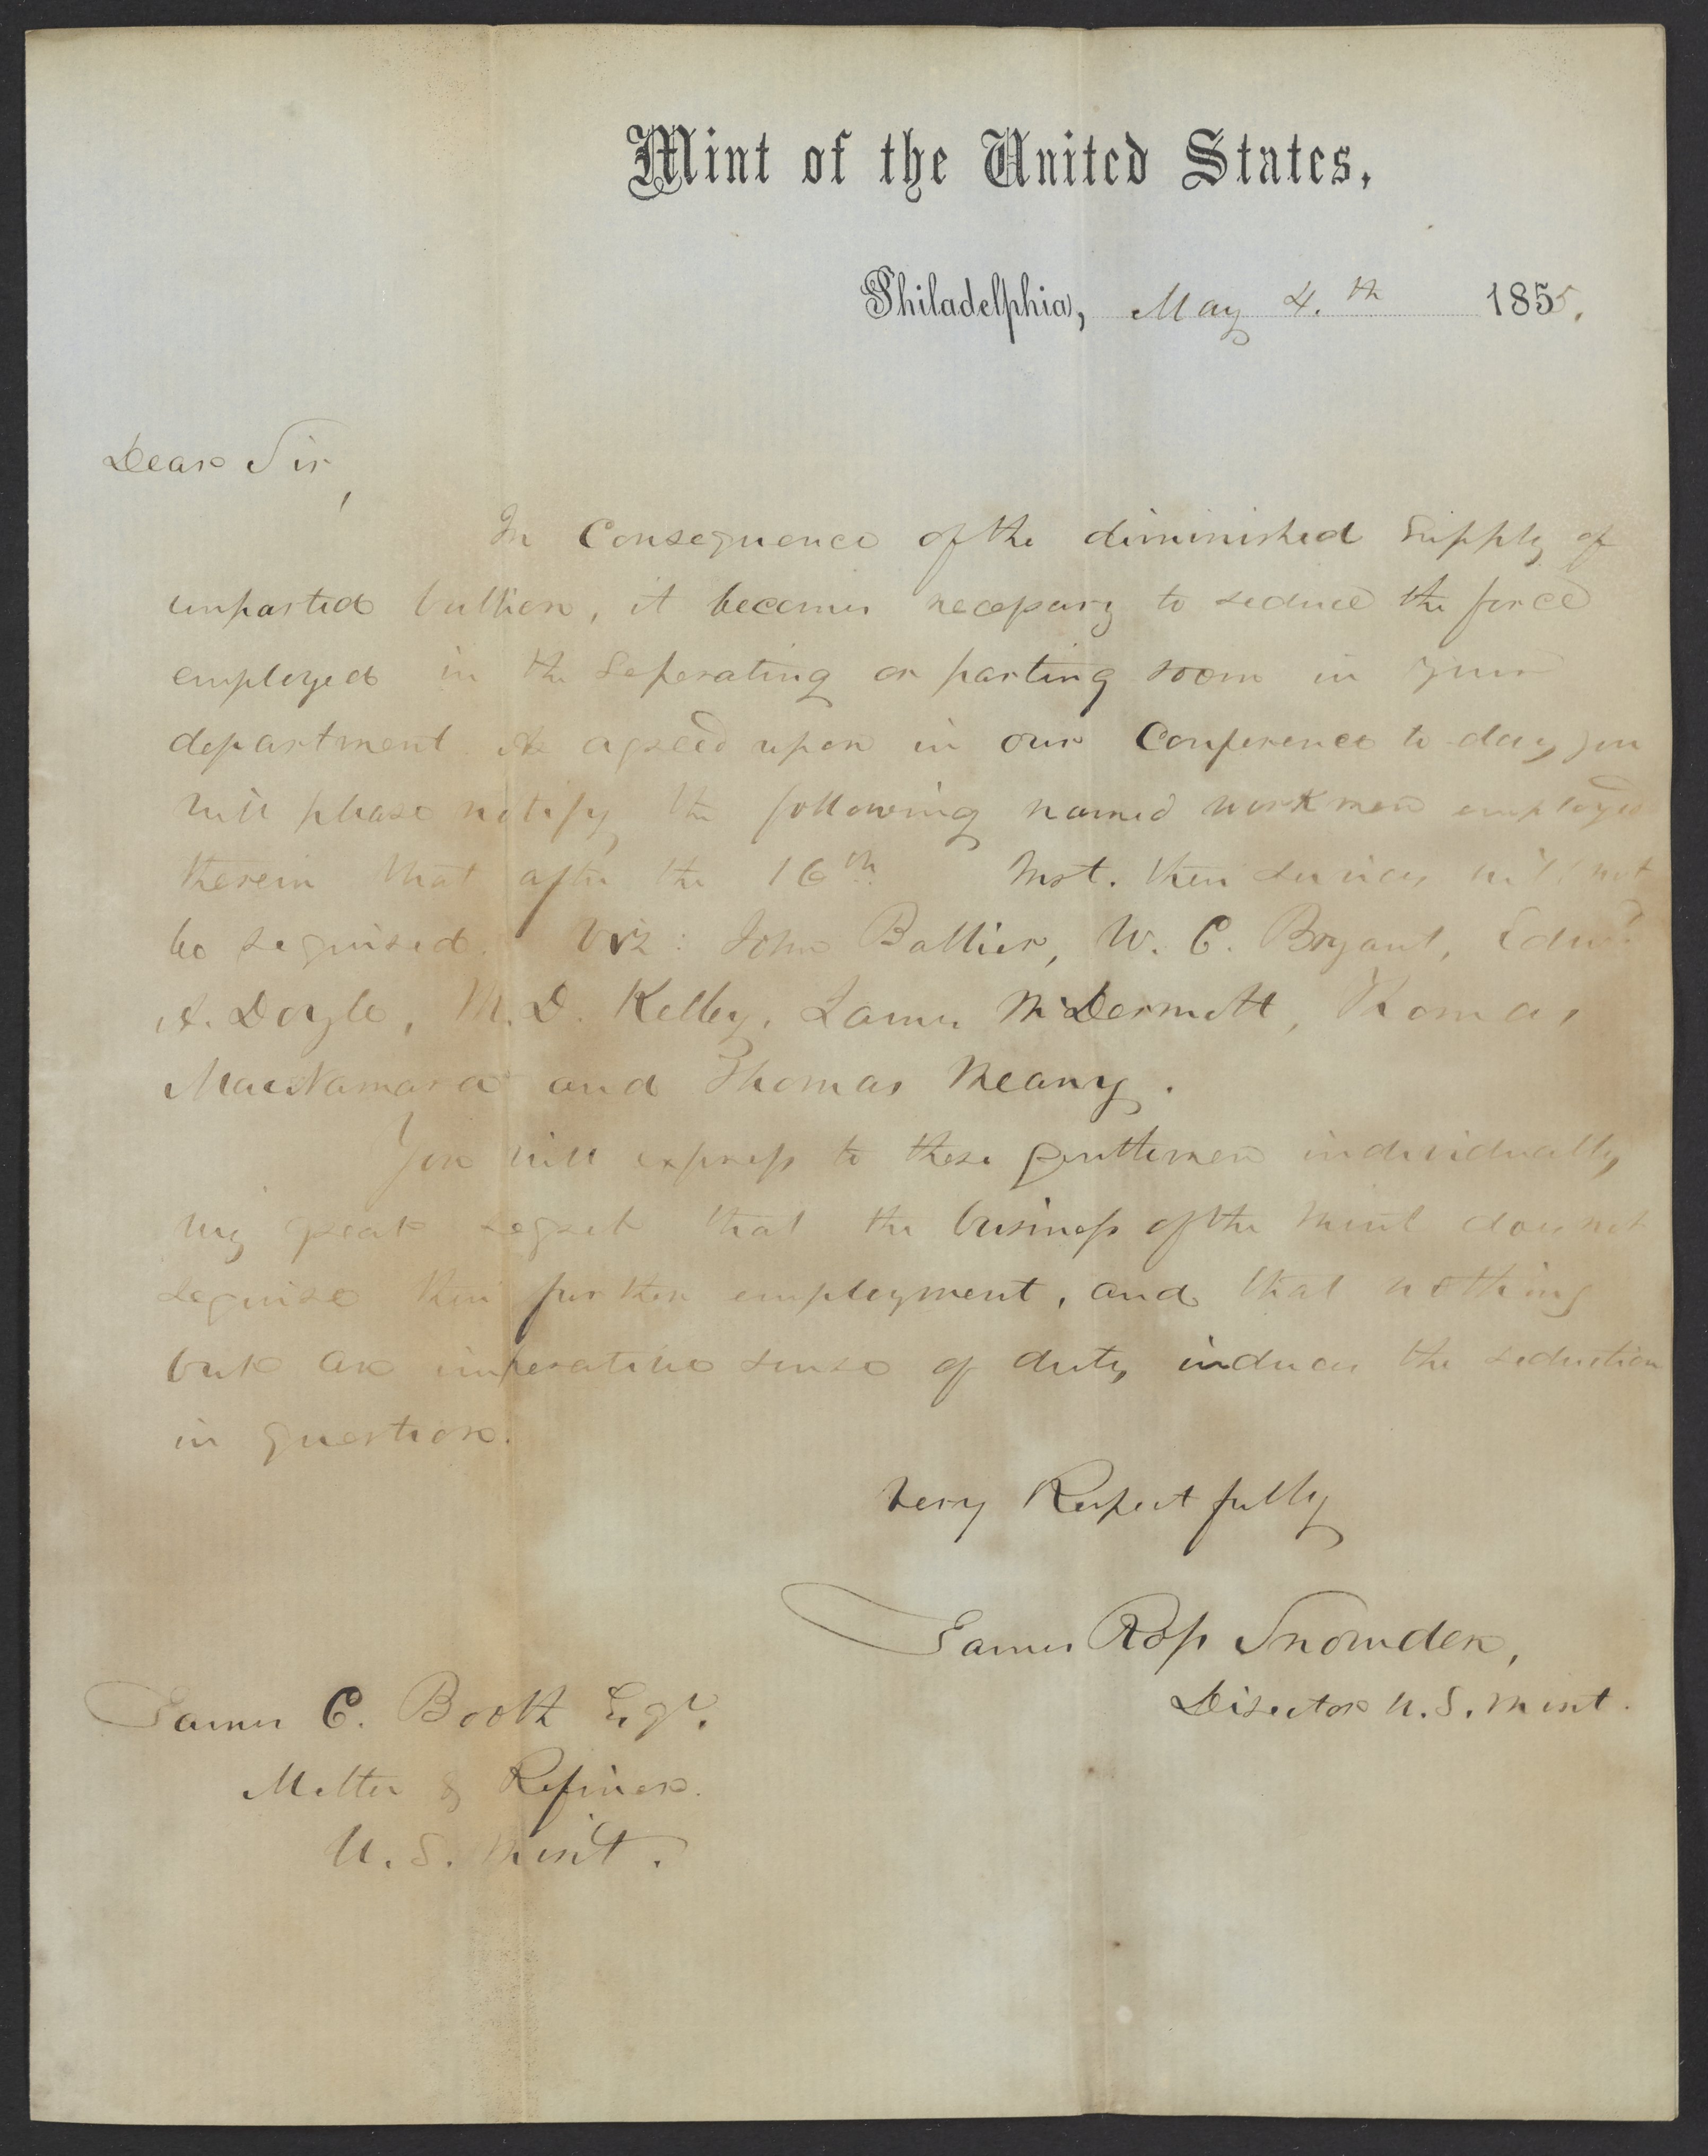 Mint of the United States,
Philadelphia, May 4.th 1855.
Dear Sir,
In Consequence of the diminished Supply of
unparted bullion, it becomes necessary to reduce the force
employed in the Seperating or parting room in your
department As agreed upon in our Conference to day, you
will please notify the following named workmen employed
therein that after the 16th Inst. their services will not
be required. Viz: John Ballier, W. C. Bryant, Edwd
A. Doyle, M. D. Kelley, James McDermott, Thomas
MacNamara and Thomas Meany.
You will express to these gentlemen individually
my great regret that the business of the Mint does not
require their further employment, and that nothing
but an imperative sense of duty induces the reduction
in question.
Very Respectfully
James Ross Snowden,
Director U. S. Mint.
James C. Booth Esqr.
Melter & Refiner.
U. S. Mint.